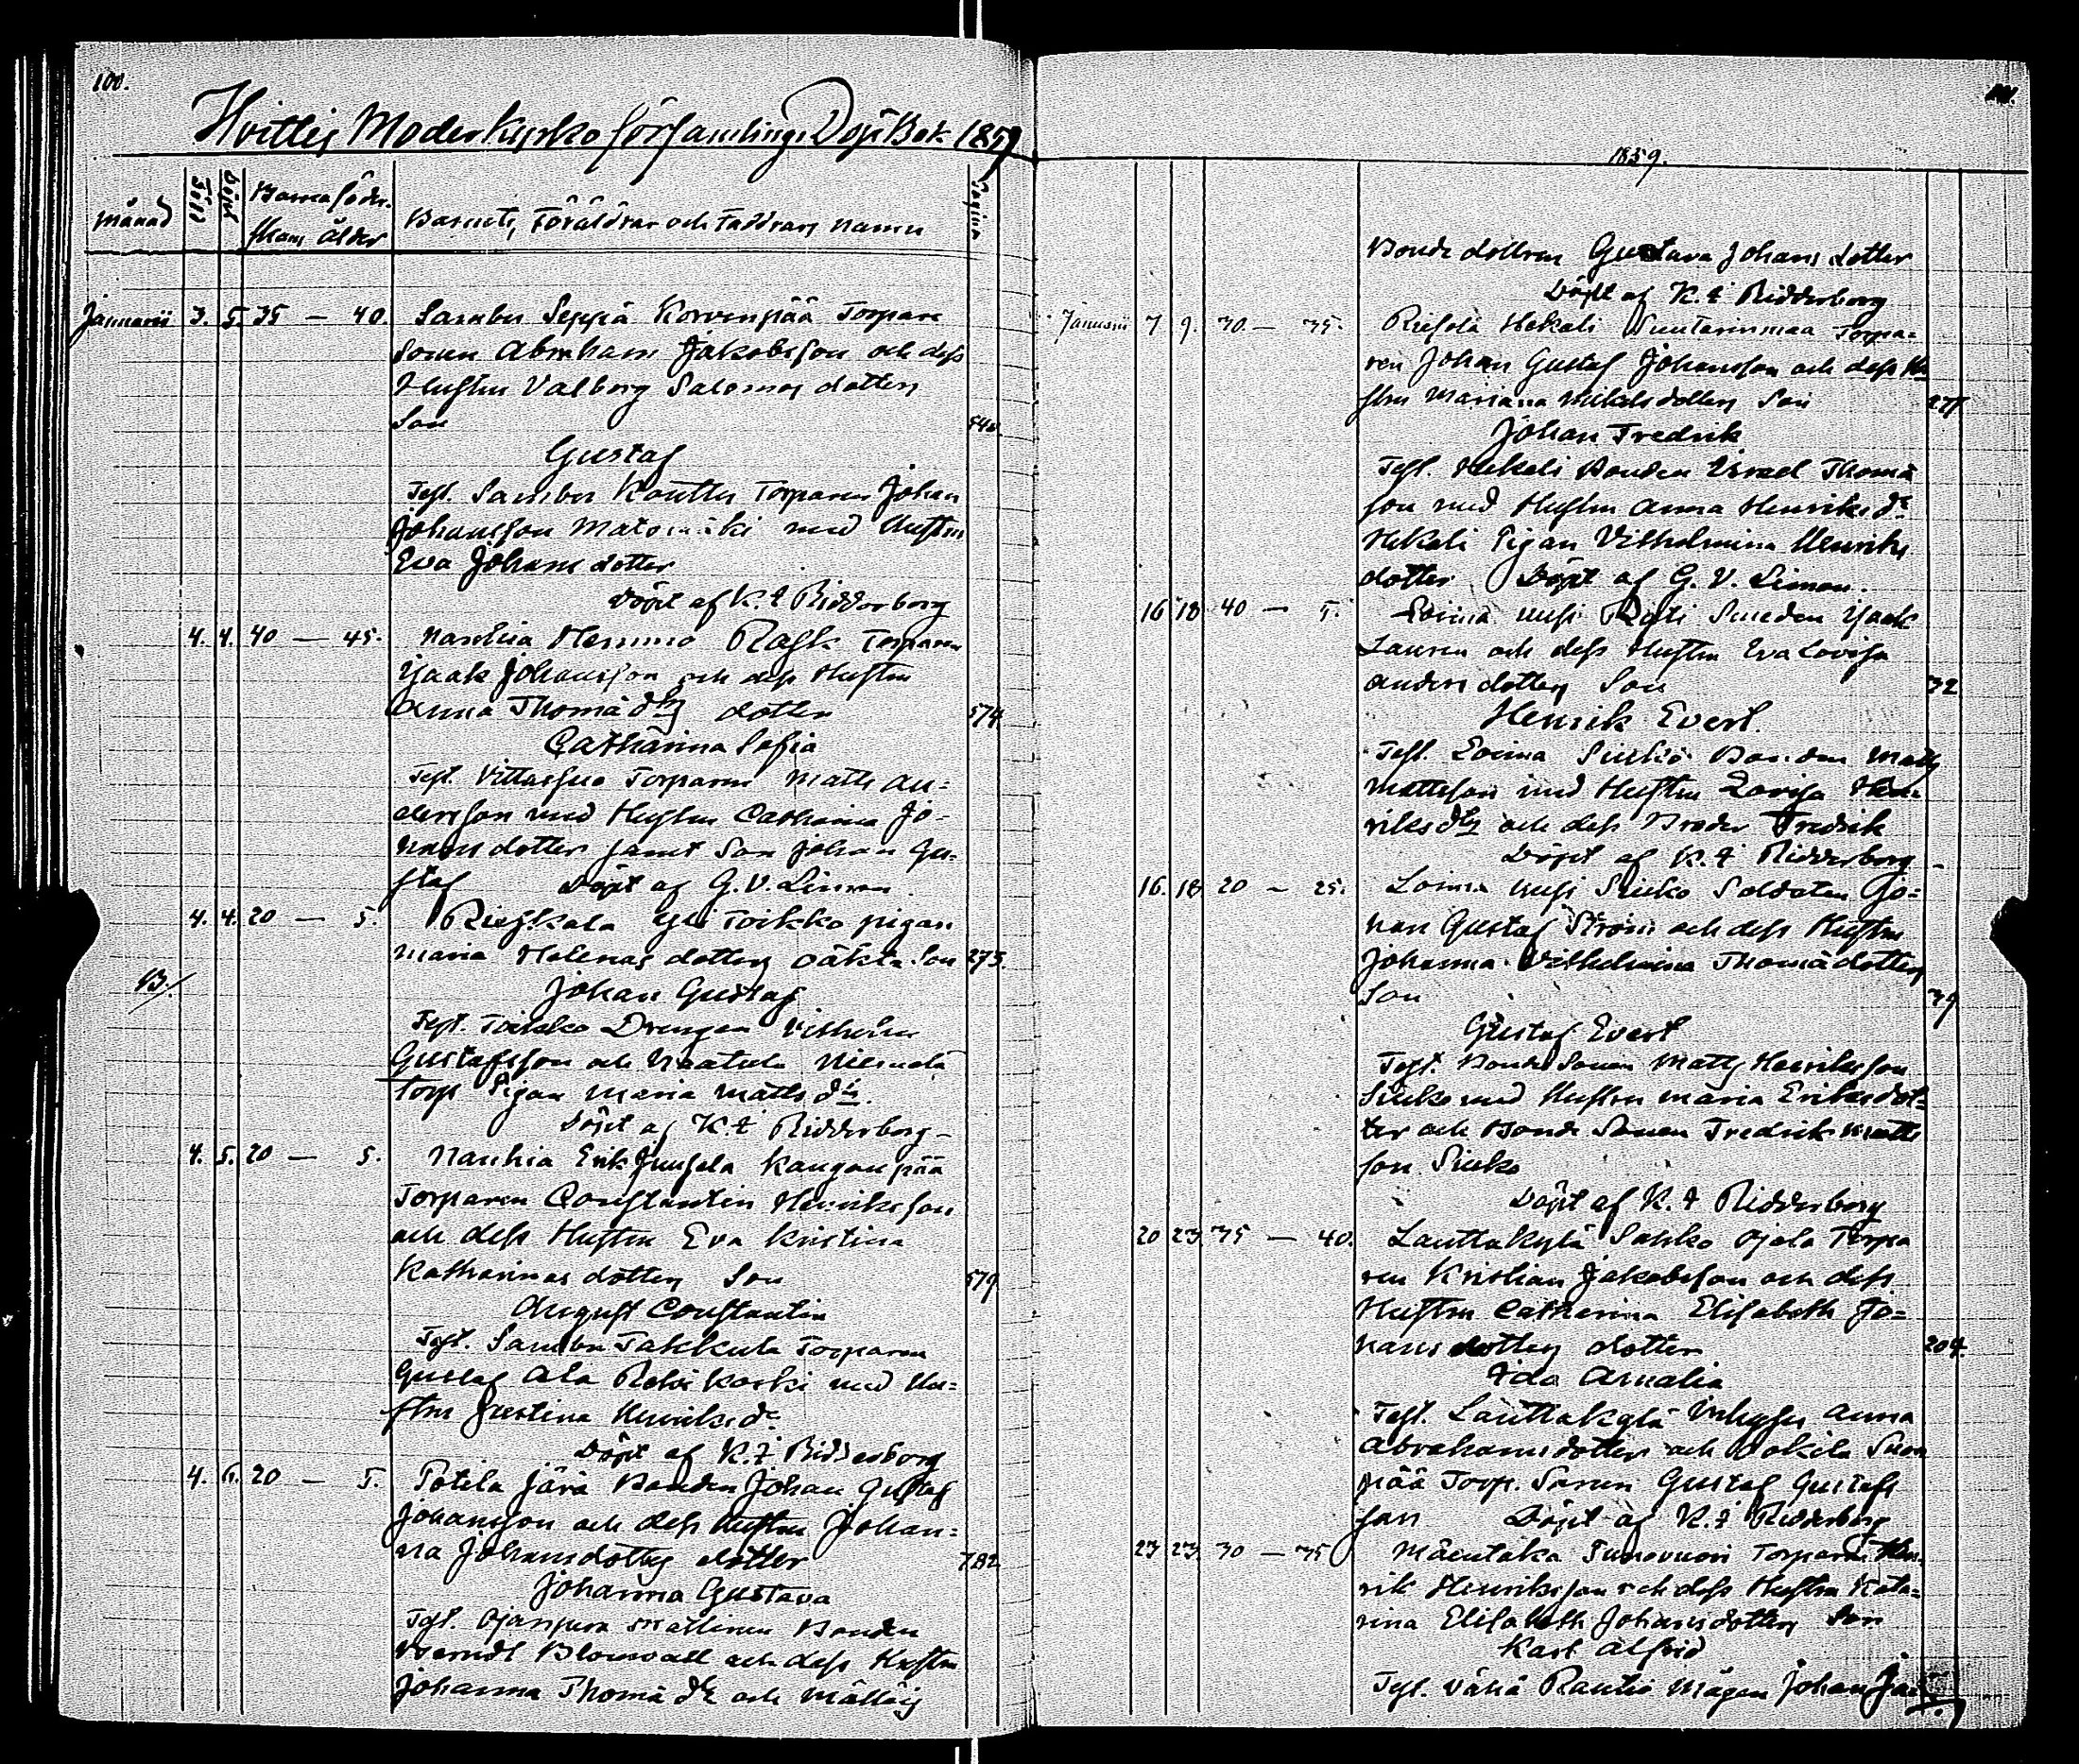 100.
Hvittis Moderkyrko församlings Dop Bok 1859
månad Född Döpt Barnaföder- Barnets, Föräldrars och Faddrars namn Pagina
skans ålder
Januarii 3. 5. 35 — 40. Sambu Seppä Korvenpää Torpare
Sonen Abraham Jakobsson och dess
Hustru Valborg Salomos dotters
Son 540.
Gustaf
Test. Sambu Kouttu Torparen Johan
Johansson Matomäki med Hustru
Eva Johans dotter
Döpt af K. F Ridderborg
4. 4. 40 — 45. Nanhia Hemmo Rask Torparen
Isaak Johansson och dess Hustru
Anna Thomä dtrs dotter 574.
Catharina Sofia
Test. Vittassuo Torparen Matts An-
dersson med Hustru Catharina Jo-
hans dotter samt Son Johan Gu-
staf Döpt af G. V. Liman.
4. 4. 20 — 5. Rieskala Yli Toikko pigan
Maria Helenas dotters oäkta Son 273.
B./ Johan Gustaf
Test. Toikko Drengen Vilhelm
Gustafsson och Naatula Niemelä
Torp Pigan Maria Matts dtr.
Döpt af K. F Ridderborg —
4. 5. 20 — 5. Nanhia Erik Junsela Kanganpää
Torparen Constantin Henriksson
och dess Hustru Eva Kristina
Katharinas dotters Son 579.
August Constantin
Test. Sambu Takkula Torparen
Gustaf Ala Ketoi koski med Hu-
stru Justina Henriks dr
Döpt af K. F Ridderborg
4. 6. 20 — 5. Potila Järä Bonden Johan Gustaf
Johansson och dess Hustru Johan-
na Johansdotters dotter 782.
Johanna Gustava
Test. Ojanperä Mattinen Bonden
Berndt Blomvall och dess Hustru
Johanna Thomä dtr och
101.
1859.
Bonde dottren Gustava Johans dotter
Döpt af K. F Ridderborg
Januarii 7 9. 30. — 35. Riesola Hekali Suutarinmaa Torpa-
ren Johan Gustaf Johansson och dess Hu
stru Mariana Mikels dotters Son 271
Johan Fredrik
Test. Hekali Bonden Israel Thomä
son med Hustru Anna Henriks dr
Hekali Pigan Vilhelmina Henriks
dotter Döpt af G. V. Liman.
16 18 40 — 5. Loima Uusi Smeden Isaak
Lauren och dess Hustru Eva Lovisa
Anders dotters Son 32
Henrik Evert.
Test. Loima Siukö Bonden Matts
Mattsson med Hustru Lovisa Hen-
riks dtr och dess Broder Fredrik
Döpt af K. F Ridderborg —
16. 18 20 — 25. Loima Uusi Siuko Soldaten Jo-
han Gustaf Ström och dess Hustru
Johanna Vilhelmina Thomädotters
Son 39
Gustaf Evert
Test. Bonde Sonen Matts Henriksson
Siuko med Hustru Maria Eriks dot-
ter och Bonde Sonen Fredrik Matts
son Siuko
Döpt af K. F Ridderborg
20 23. 35 — 40. Lauttakylä Sakko Ojala Torpa
ren Kristian Jakobsson och dess
Hustru Catharina Elisabeth Jo-
hans dotters dotter 204.
Ida Amalia
Test. Lauttakylä Inhyses Anna
Abrahamsdotter och Sokila Suon
pää Torp. Sonen Gustaf Gustafs
son Döpt af K. F Ridderborg
23 23. 30 — 35 Mäentaka Torparen Hen-
rik Henriksson och dess Hustru Kata-
rina Elisabeth Johansdotters Son
Karl Alfrid
Test. Vänä Rautio Mågen Johan